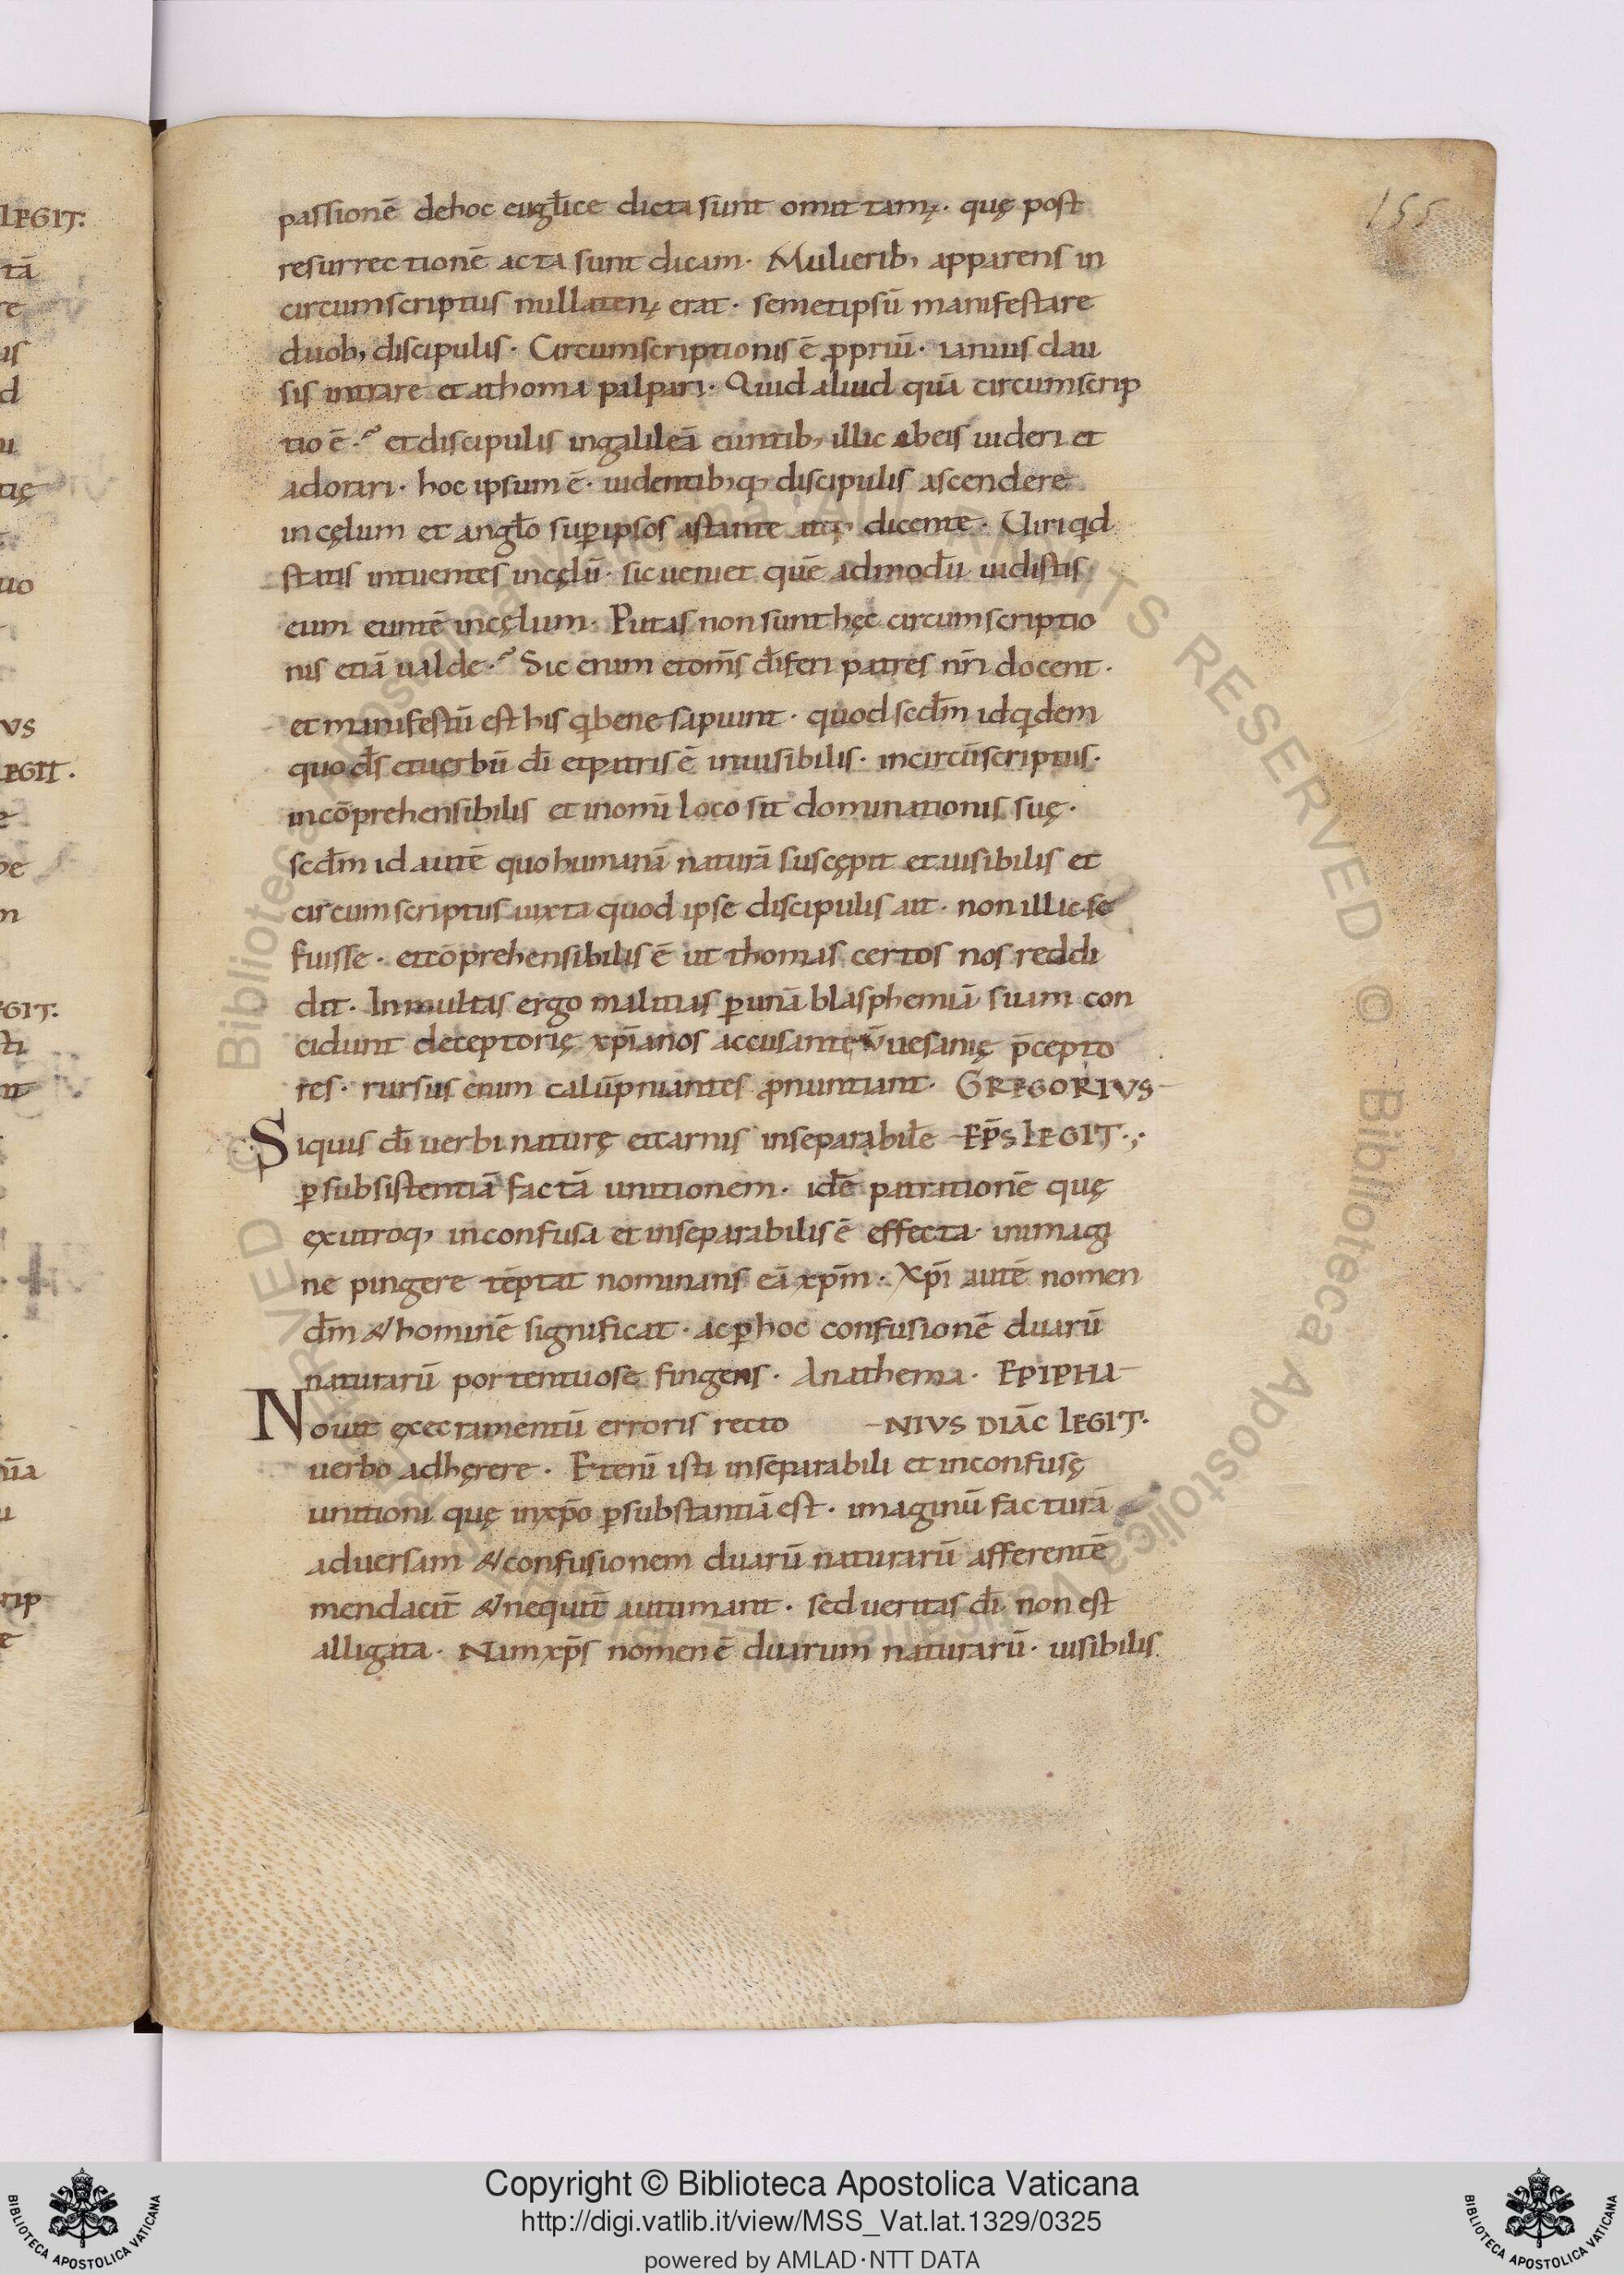 155
passionē dehoc euglīce dicta sunt omittamꝰ. quę post
resurrectionē acta sunt dicam. Mulierib; apparens in
circumscriptus nullatenꝰ erat. semetipsū manifestare
duob; discipulis. Circumscriptionis ē ꝓpriū. ianuis clau
sis intrare et athoma palpari. Quid aliud quā circumscrip
tio ē? et discipulis ingalileā euntib; illic abeis uideri et
adorari. hoc ipsum ē. uidentib;q; discipulis ascendere
incęlum et anglo suꝑipsos astante atq; dicente. Uiri qd
statis intuentes incęlū. sic ueniet quē admodū uidistis
eum euntē incęlum. Putas non sunt hęc circumscriptio
nis etiā ualde? Sic enim et om̄s dīferi patres nr̄i docent.
et manifestū est his qi bene sapiunt. quod scd̄m id qidem
quo d̄s et uerbū dī et patris ē inuisibilis. incircūscriptus.
incōprehensibilis et inomī loco sit dominationis suę.
scd̄m id autē quo humanā naturā suscępit et uisibilis et
circumscriptus iuxta quod ipse discipulis ait. non illic se
fuisse. et cōprehensibilis ē ut thomas certos nos reddi
dit. In multas ergo malitias ꝑ unā blasphemiā suam con
cidunt deceptorię xp̄ianos accusante uesanię p̄cepto
res. rursus enim calūpniantes ꝓnuntiant. GREGORIVS
Siquis dī uerbi naturę et carnis inseparabilē EP̄S LEGIT.
ꝑ subsistentiā factā unitionem. idē patrationē quę
ęx utroq; inconfusa et inseparabilis ē effecta. inimagi
ne pingere tēptat nominans eā xp̄m. Xp̄i autē nomen
d̄m & hominē significat. ac ꝑ hoc confusionē duarū
naturarū portentuose fingens. Anathema. EPIPHA
Nouit ęxecramentū erroris recto NIVS DIĀC LEGIT.
uerbo adhęrere. Etenī isti inseparabili et inconfusę
unitioni quę inxp̄o ꝑsubstantiā est. imaginū facturā
aduersam & confusionem duarū naturarū afferentē
mendacit̄ & nequit̄ autumant. sed ueritas dī non est
alligata. Nam xp̄s nomen ē duarum naturarū. uisibilis
Copyright © Biblioteca Apostolica Vaticana
http://digi.vatlib.it/view/MSS_Vat.lat.1329/0325
powered by AMLAD·NTT DATA